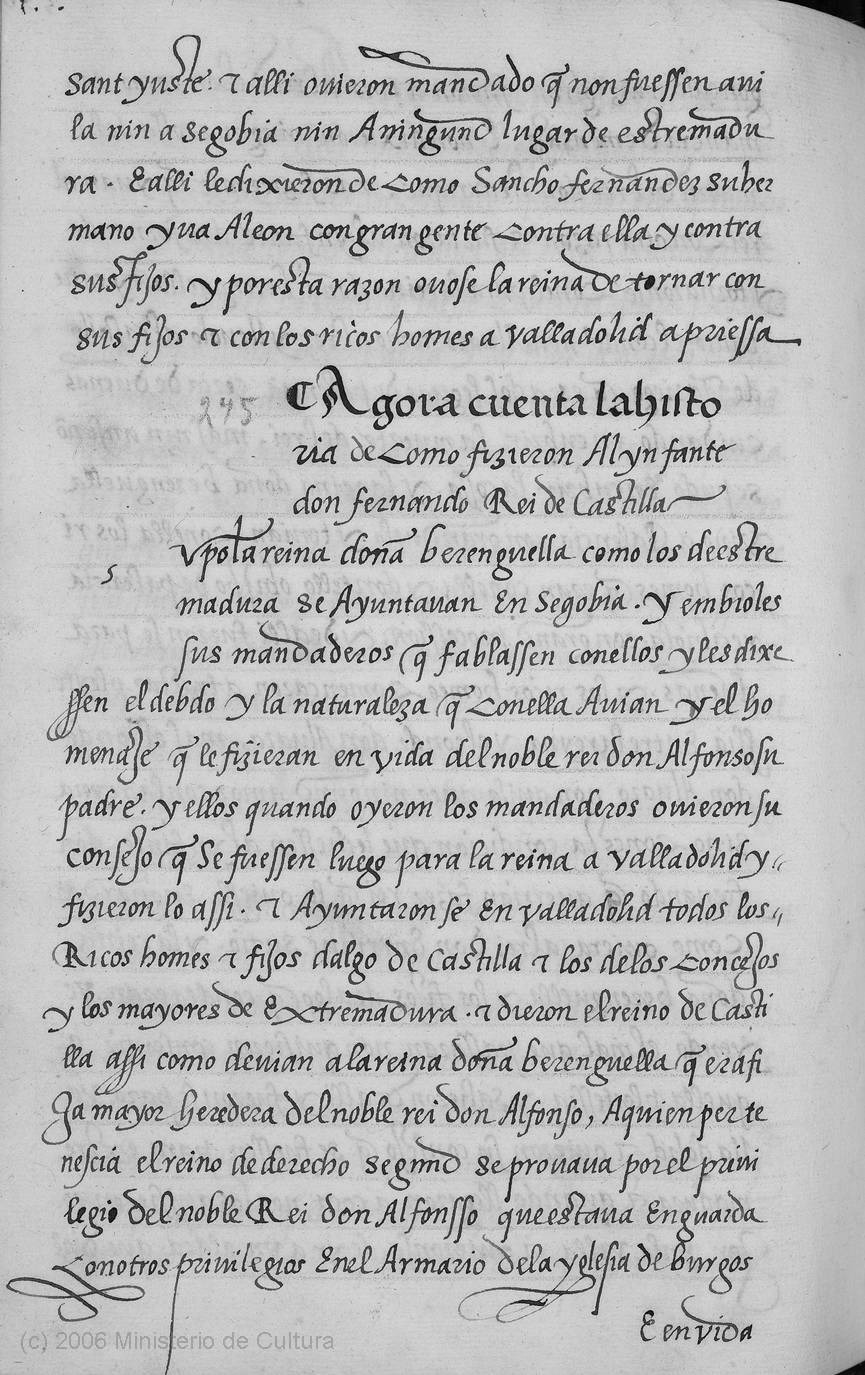 Sant yuste. τ alli ovieron mandado q̃ non fuessen avi
la nin a segobia nin Aningund lugar de estremadu
ra. E alli le dixieron de Como Sancho fernandez su her
mano yva A leon con gran gente Contra ella y contra
sus fijos. y por esta razon ovose la reina de tornar con
sus fijos τ con los ricos homes a valladolid apriessa
245
Agora cuenta la histo
ria de Como fizieron Al ynfante
don fernando Rei de Castilla
s
vpo la reina doña berenguella como los de estre
madura se Ayuntavan En Segobia. y embioles
sus mandaderos q̃ fablassen con ellos y les dixe
ssen el debdo y la naturaleza q̃ Con ella Avian y el ho
menaje q̃ le fizieran en vida del noble rei don Alfonso su
padre. y ellos quando oyeron los mandaderos ovieron su
consejo q̃ Se fuessen luego para la reina a valladolid y
fizieron lo assi. τ Ayuntaron se En valladolid todos los
Ricos homes τ fijos dalgo de Castilla τ los de los Concejos
y los mayores de Extremadura. τ dieron el reino de Casti
lla assi como devian a la reina doña berenguella q̃ era fi
Ja mayor heredera del noble rei don Alfonso, A quien perte
nescia el reino de derecho segund se provava por el privi
legio del noble Rei don Alfonsso que estava En guarda
Con otros privilegios En el Armario de la yglesia de burgos
E en vida
(c) 2006 Ministerio de Cultura